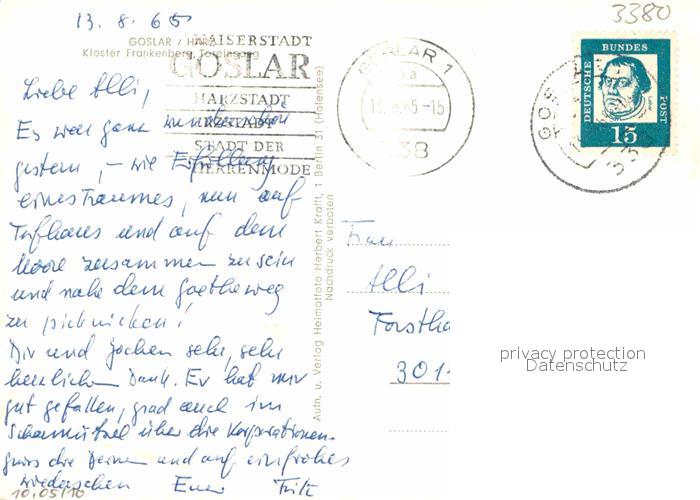 13. 8. 65
3380
GOSLAR / HARZ
Kloster Frankenberg, Toreingang
KAISERSTADT
GOSLAR
HARZSTADT
ERZSTADT
STADT DER
HERRENMODE
GOSLAR 1
va
13.8.65-15
338
DEUTSCHE BUNDESPOST
Luther
15
Liebe Alli,
Es war ganz wunderschön
gestern, – wie Erfüllung
eines Traumes, nun auf
Torfhaus und auf dem
Moore zusammen zu sein
und nahe dem Goetheweg
zu picknicken!
Dir und Jochen sehr, sehr
herzlichen Dank. Es hat mir
gut gefallen, grad auch im
Scharmützel über die Korporationen.
die und auf ein frohes
Wiedersehen Euer Fritz
Aufn. u. Verlag Heimatfoto Herbert Krafft, 1 Berlin 31 (Halensee)
Nachdruck verboten
Frau
Alli
Forstha
301
privacy protection
Datenschutz
10.05/10